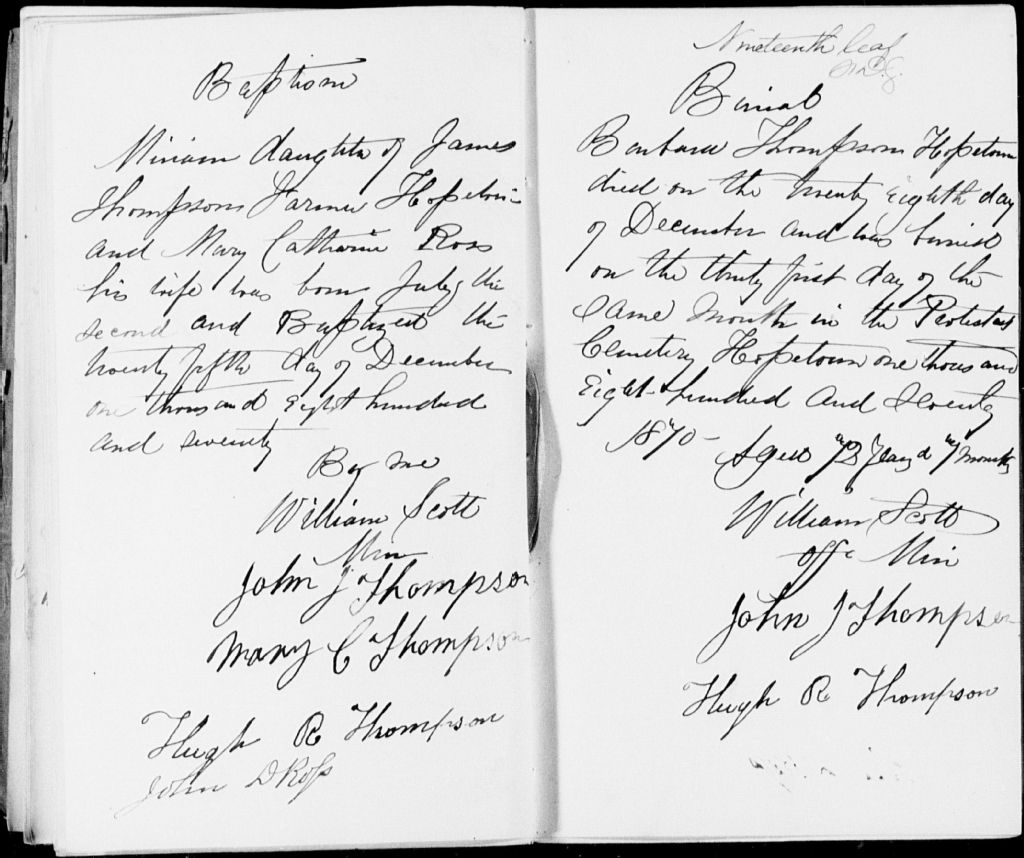 Baptism
Miriam daughter of James
Thompson Farmer Hopetown
and Mary Catharine Ross
his wife was born July the
second and Baptized the
twenty fifth day of December
one thousand Eight hundred
and seventy
By me
William Scott
Min
John J Thompson
Mary C Thompson
Hugh R Thompson
John D Ross
Nineteenth leaf
Burial
Barbara Thompson Hopetown
died on the twenty Eighth day
of December and was buried
on the thirty first day of the
same Month in the Protestant
Cemetery Hopetown one thousand
Eight hundred and Seventy
1870 - Aged 73 Years 7 Months
William Scott
offc Min
John J Thompson
Hugh R Thompson